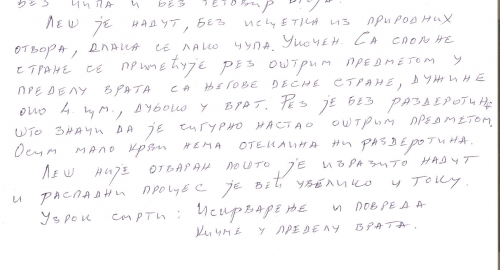 без чипа и без тетовир броја.
Леш је надут, без исцетка из природних
отвора, длака се лако чупа. Укочен. Са спољне
стране се примећује рез оштрим предметом у
пределу врата са његове десне стране, дужине
око 4. цм., дубоко у врат. Рез је без раздеротине
што значи да је сигурно настао оштрим предметом.
Осим мало крви нема отеклина ни раздеротина.
Леш није отваран пошто је изразито надут
и распадни процес је већ увелико у току.
Узрок смрти: Искрварење и повреда
кичме у пределу врата.